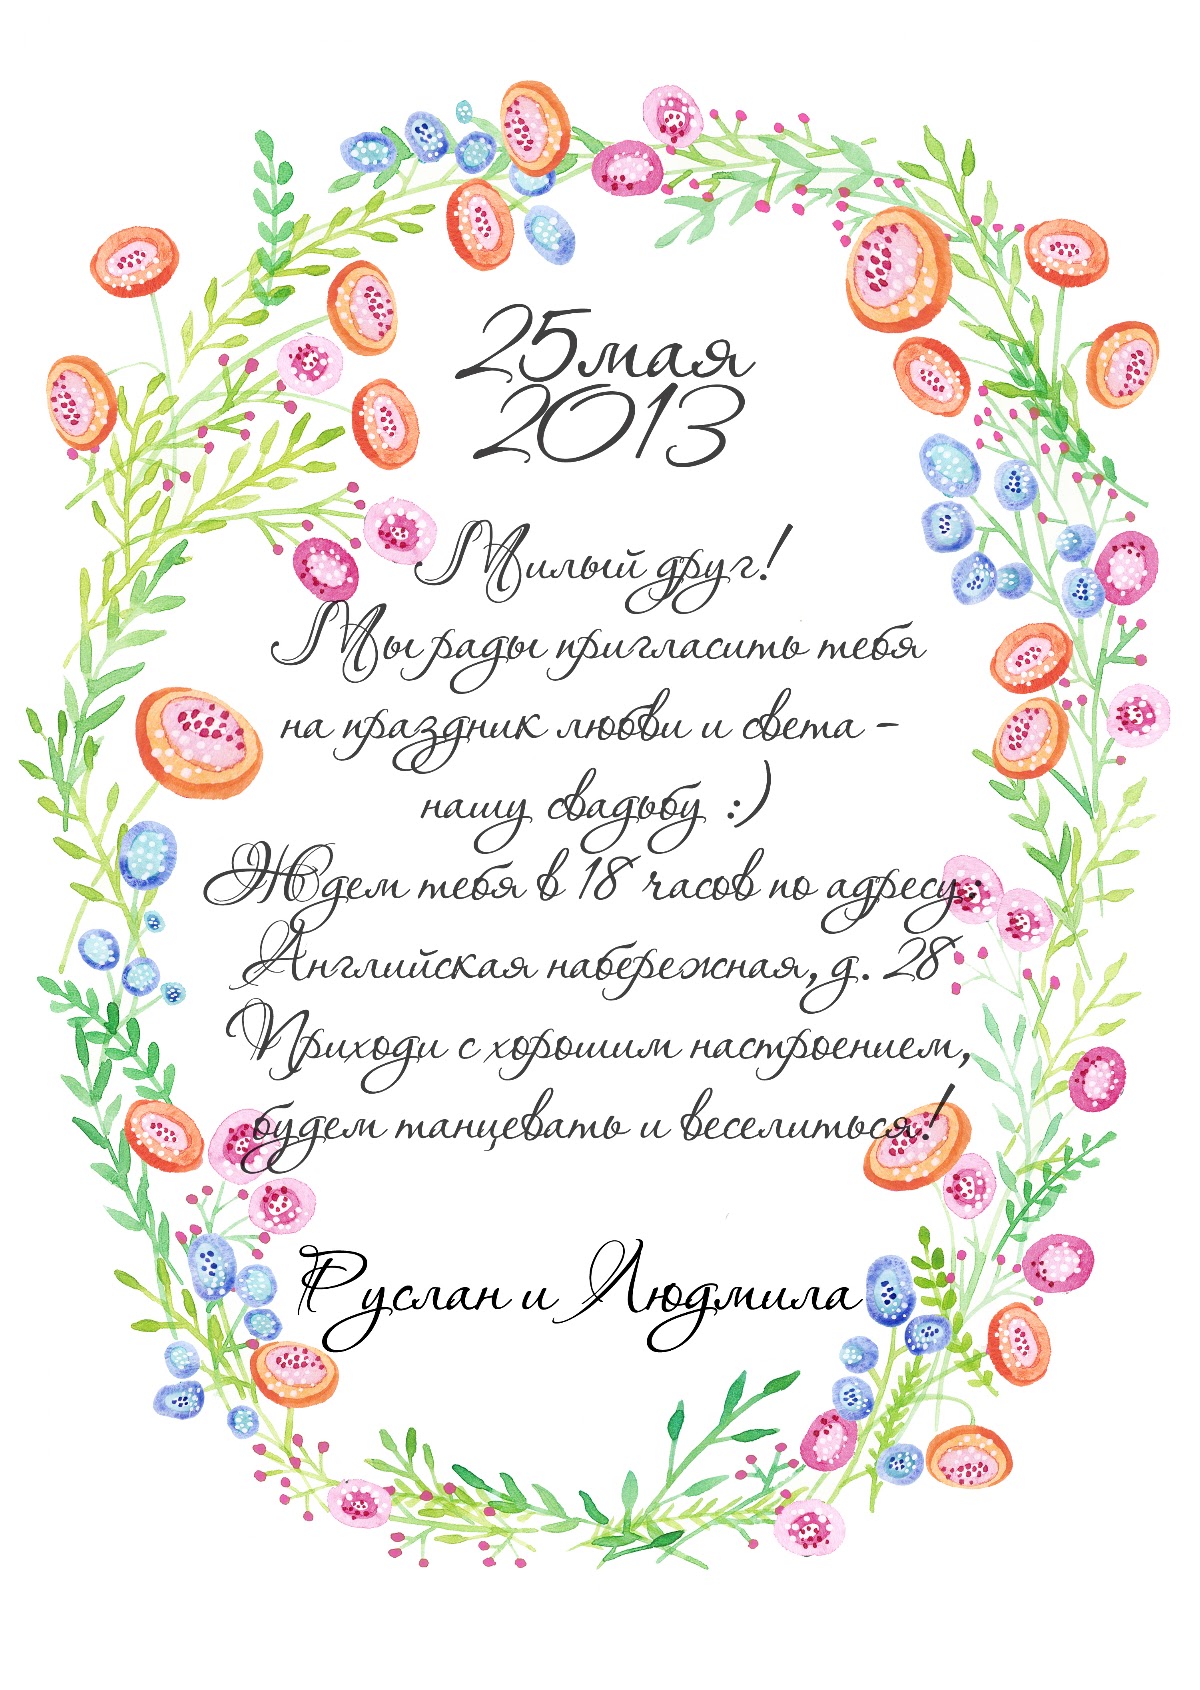 25 мая
2013
Милый друг!
Мы рады пригласить тебя
на праздник любви и света -
нашу свадьбу :)
Ждем тебя в 18 часов по адресу:
Английская набережная, д. 28
Приходи с хорошим настроением,
будем танцевать и веселиться!
Руслан и Людмила